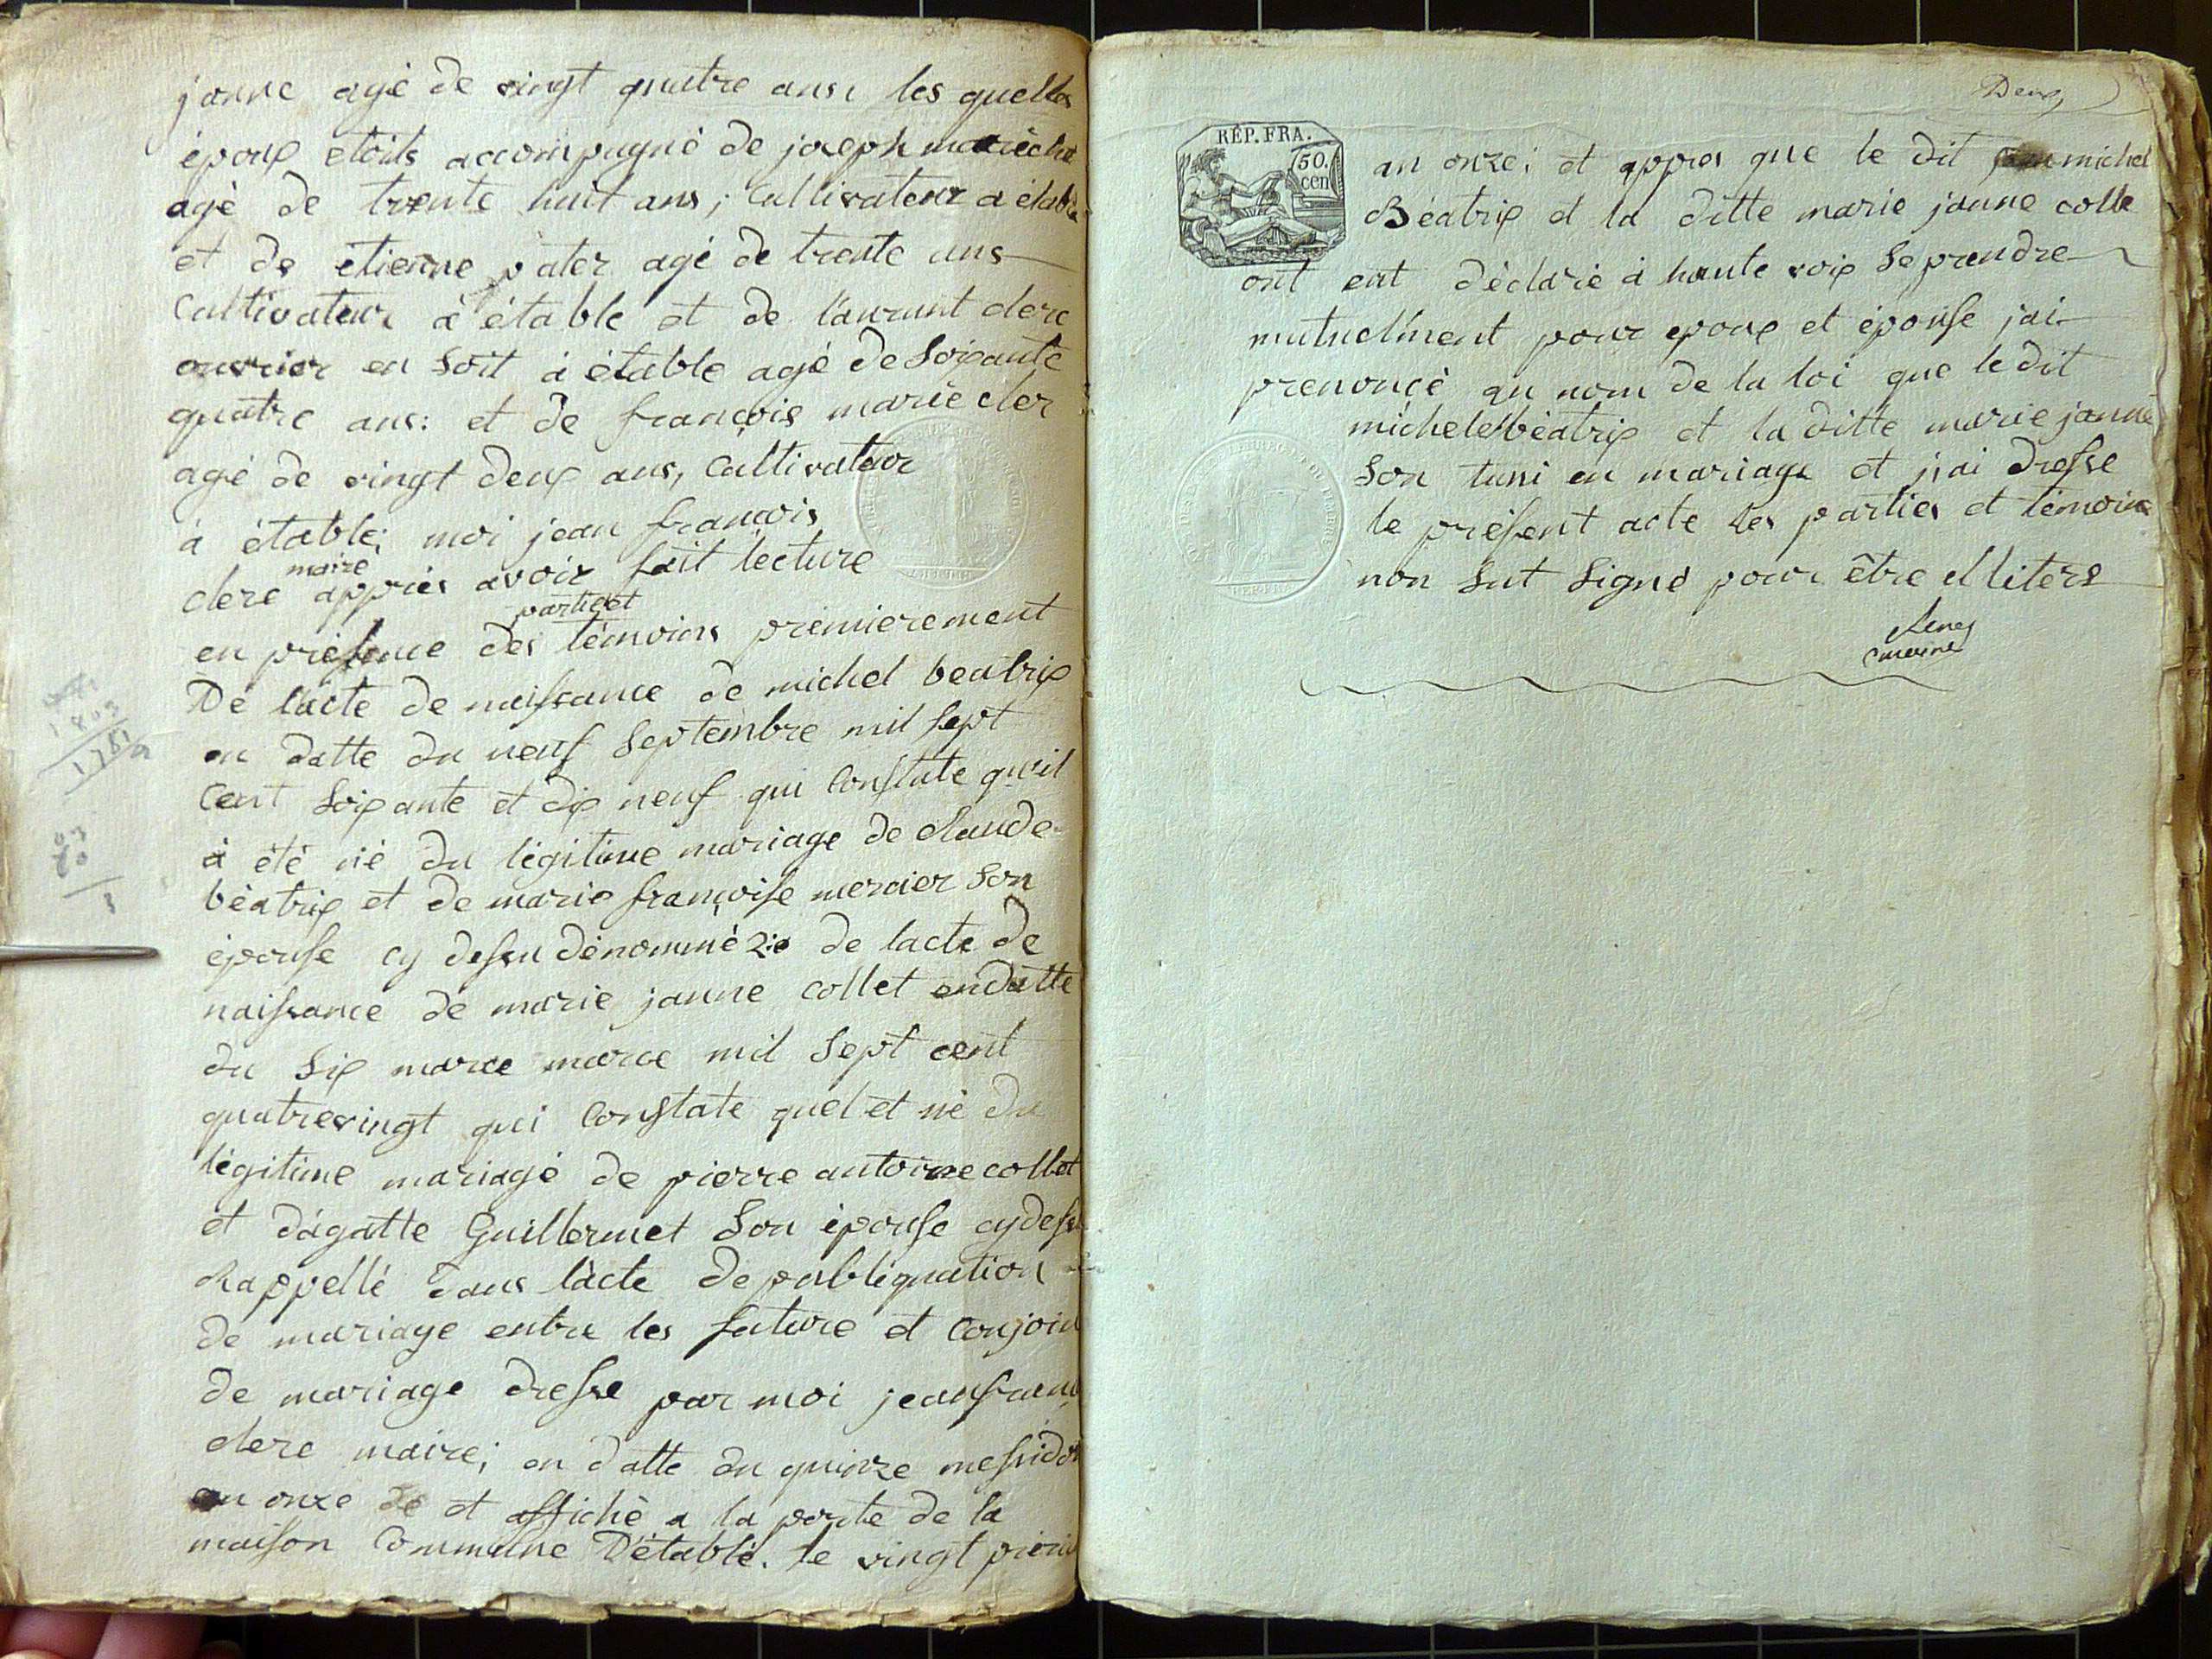 janne agé de vingt quatre ans, les quelles
époux étoits accompagné de joseph marèchal
agé de trente huit ans; Cultivateur a étable
et de étienne pater agé de trente ans
Cultivateur à étable et de laurant clerc
ouvrier en soit à étable agé de soixante
quatre ans: et de françois marie cler
agé de vingt deux ans, Cultivateur
à étable; moi jean francois
maire
clerc appriès avoir fait lecture
partie et
en présence des témoins premierement
De lacte de naissance de michel beatrix
en datte du neuf Septembre mil sept
Cent soixante et dix neuf qui Constate qu'il
à été né du légitime mariage de claude
béatrix et de marie françoise mercier son
épouse cy dessu dénommé 2io de lacte de
naissance de marie janne collet en datte
du six marce marce mil sept cent
quatrevingt qui Constate quel et né du
légitime mariage de pierre antoine collet
et dagatte Guillermet son épouse cydess
Rappellé dans lacte de publiquation
de mariage entre les future et Conjoin
de mariage dresse par moi jeanfran
clerc maire; en datte du quinze messidor
an onze et affiché a la porte de la
maison Commune D'étable. le vingt
1803
Deux
RÉP. FRA.
50. cen
an onze; et appres que le dit michel
Béatrix et la ditte marie janne colle
ont ent déclarié à haute voix se prendre
mutuellment pour epoux et épouse jai
prenoncé au nom de la loi que le dit
michele béatrix et la ditte marie janne
son tuni en mariage et j,ai dresse
le présent acte les parties et témoins
non sut signé pour être elliteré